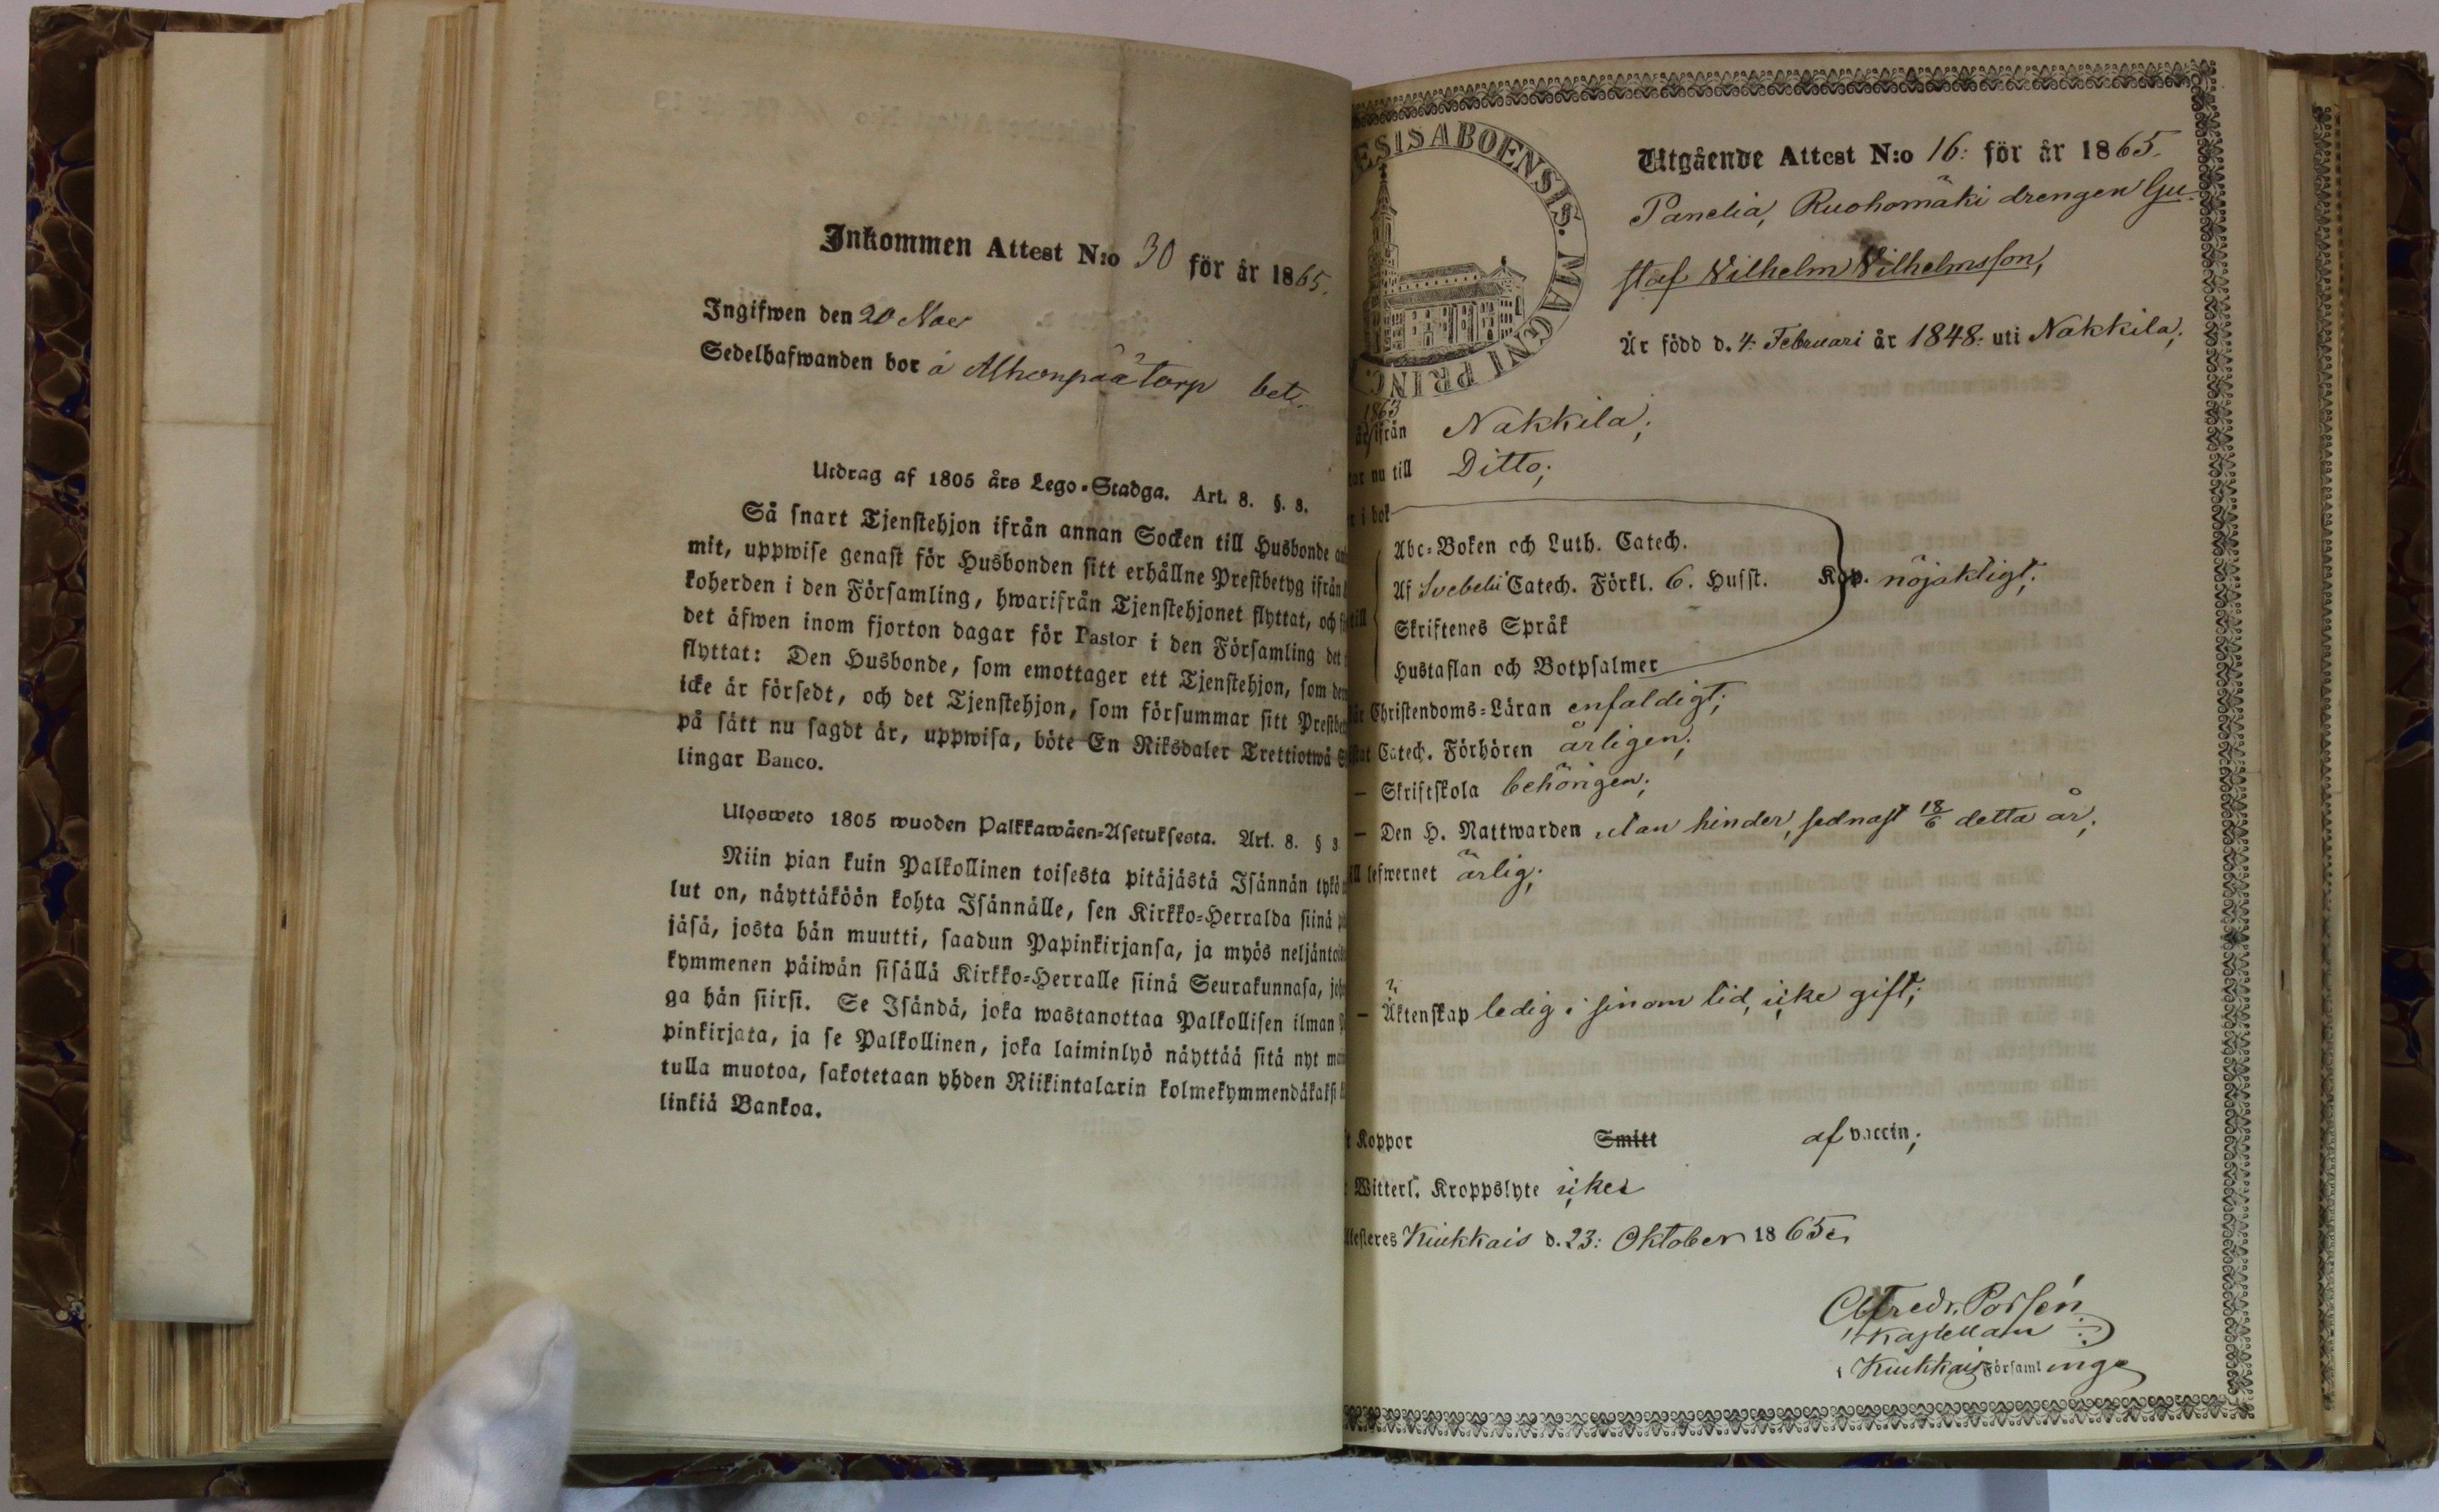 Inkommen Attest N:o 30 för år 1865.
Ingifwen den 20 Nov
Sedelhafwanden bor å torp bet.
Utdrag af 1805 års Lego-Stadga. Art. 8. §. 8.
Så snart Tjenstehjon ifrån annan Socken till Husbonde
mit, uppwise genast för Husbonden sitt erhållne Prestbetyg ifrån
koherden i den Församling, hwarifrån Tjenstehjonet flyttat, och
det äfwen inom fjorton dagar för Pastor i den Församling det
flyttat: Den Husbonde, som emottager ett Tjenstehjon, som
icke är försedt, och det Tjenstehjon, som försummar sitt Prestbe
på sätt nu sagdt är, uppwisa, böte En Riksdaler Trettiotwå S
lingar Banco.
Ulosweto 1805 wuoden Palkkawäen-Asetuksesta. Art. 8. § 8.
Niin pian kuin Palkollinen toisesta pitäjästä Isännän tykö
lut on, näyttäköön kohta Isännälle, sen Kirkko-Herralda siinä
jäsä, josta hän muutti, saadun Papinkirjansa, ja myös neljäntois
kymmenen päiwän sisällä Kirkko-Herralle siinä Seurakunnasa, joh
ga hän siirsi. Se Isändä, joka wastanottaa Palkollisen ilman
pinkirjata, ja se Palkollinen, joka laiminlyö näyttää sitä nyt
tulla muotoa, sakotetaan yhden Riikintalarin kolmekymmendäkaksi
linkiä Bankoa.
ESIS ABOENSIS. MAGNI PRINC
Utgående Attest N:o 16: för år 1865.
Panelia, Ruohomäki drengen Gu-
staf Wilhelm Wilhelmsson,
Är född d. 4: Februari år 1848: uti Nakkila;
1863
år ifrån Nakkila;
nu till Ditto;
i bok
Abc-Boken och Luth. Catech.
Af Svebelii Catech. Förkl. 6. Husst. Kap. nöjaktigt;
till Skriftenes Språk
Hustaflan och Botpsalmer
Christendoms-Läran enfaldigt;
Catech. Förhören årligen;
— Skriftskola behörigen;
— Den H. Nattwarden utan hinder, sednast 18/6 detta år;
till lefwernet ärlig;
— Äktenskap ledig i sin om tid, icke gift;
Koppor Smitt af vaccin;
Witterl. Kroppslyte icke
Attesteres Kiukkais d. 23: Oktober 1865.
Alfredr. Porsén
Kapellan
i Kiukkais Församlinge